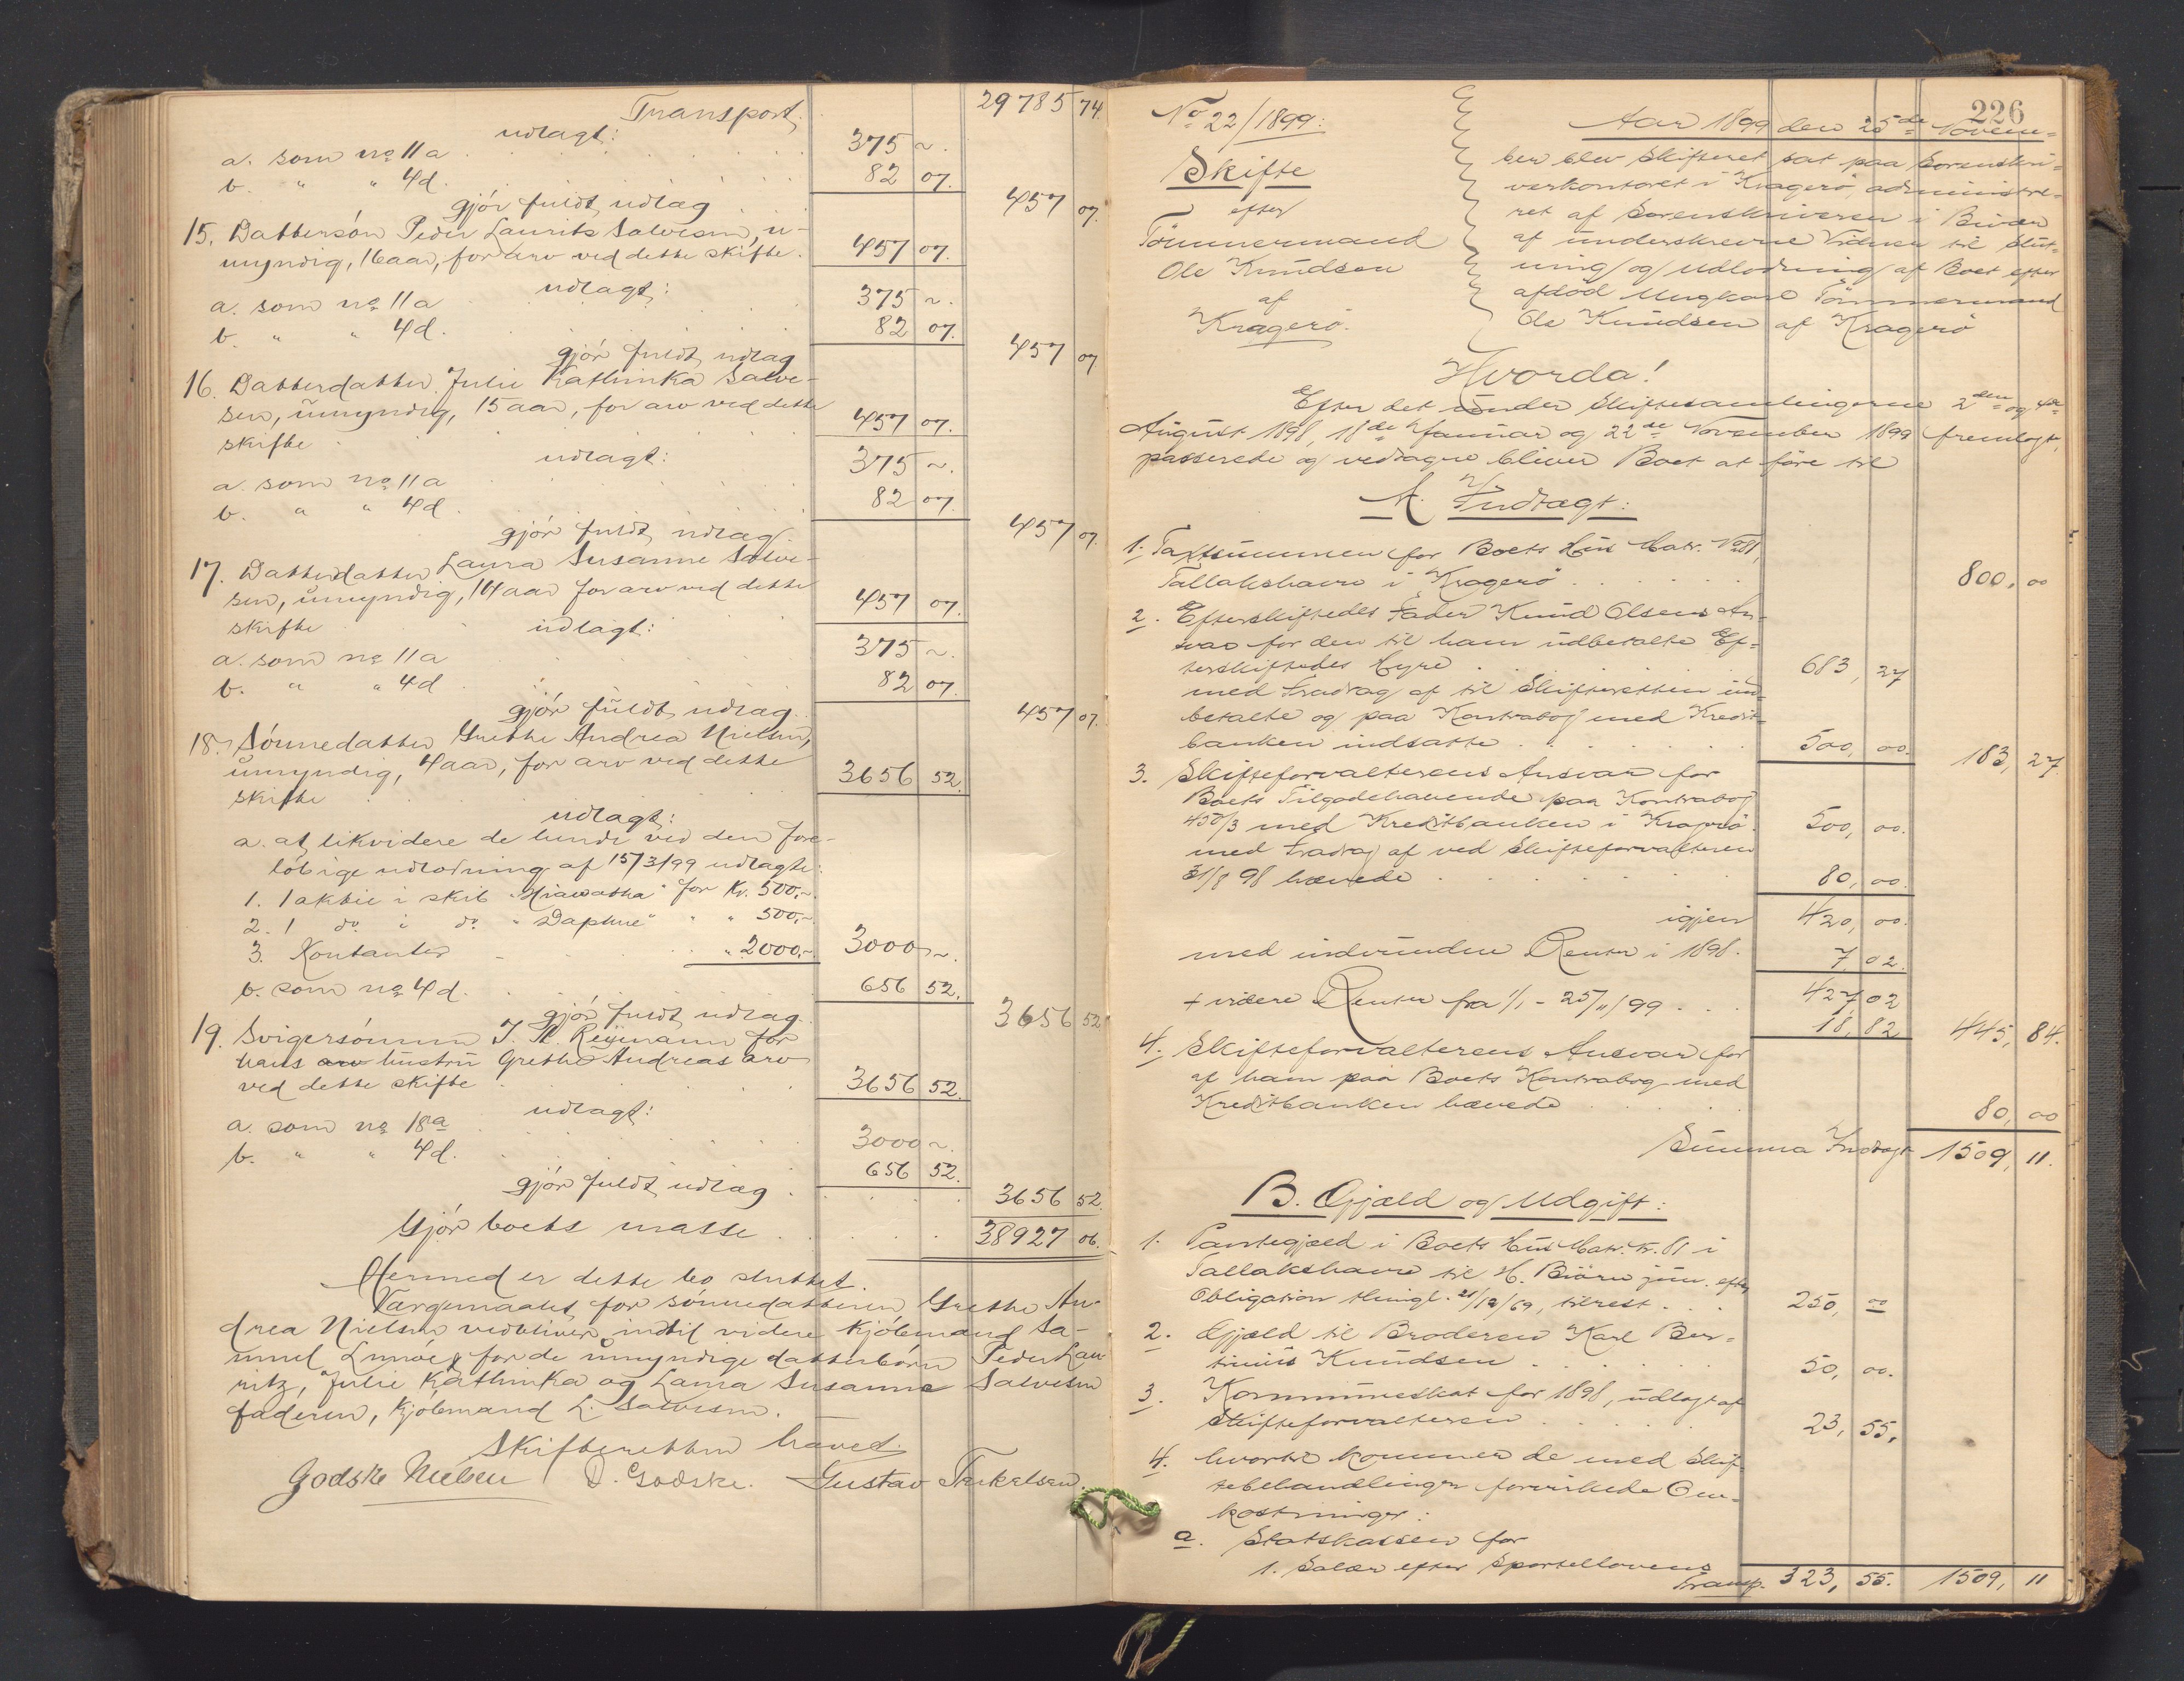 Transport 29785 74.
udlagt:
a. som no 11a . . . 375 ~.
b. " " 4d. . . . 82 07.
gjör fuldt udlag . . 457 07.
15. Dattersön Peder Laurits Salvesen, u-
myndig, 16 aar, for arv ved dette skifte. 457 07.
udlagt:
a. som no 11a . . . 375 ~.
b. " " 4d. . . . 82 07.
gjör fuldt udlag 457 07
16. Datterdatter Julie Kathinka Salve-
sen, umyndig, 15 aar, for arv ved dette
skifte . . . 457 07.
udlagt:
a. som no 11a . . . 375 ~.
b. " " 4d. . . . 82 07.
gjör fuldt udlag. 457 07.
17. Datterdatter Laura Susanne Salve-
sen, umyndig, 14 aar for arv ved dette
skifte . . . 457 07.
udlagt:
a. som no 11a . . . 375 ~.
b. " " 4d . . . 82 07.
gjör fuldt udlag. 457 07.
18. Sönnedatter Grethe Andrea Nielsen,
umyndig, 4 aar, for arv ved dette
skifte . . . 3656 52.
udlagt:
a. at likvidere de hende ved den fore-
löbige udlodning af 15/3/99 udlagte:
1. 1 aktie i skib "Hiawatha" for Kr. 500,~
2. 1 do i do "Daphne" " " 500,~
3. Kontanter . . . " 2000,~ 3000 ~.
b. som no 4d. . . . 656 52.
gjör fuldt udlag. 3656 52
19. Svigersönnen J. A. Reimann for
hans arv hustru Grethe Andreas arv
ved dette skifte . . . 3656 52.
udlagt:
a. som no 18a . . . 3000 ~.
b. " " 4d. . . . 656 52.
gjör fuldt udlag . . . 3656 52.
Gjör boets masse . . . 38927 06.
Hermed er dette bo sluttet.
Værgemaalet for sönnedatteren Grethe An-
drea Nielsen vedbliver indtil videre kjöbmand Sa-
muel for de umyndige datterbörn Peder Lau
ritz, Julie Kathinka og Laura Susanne Salvesen
faderen, kjöbmand L. Salvesen.
Skifteretten hævet.
Godske Nielsen D. Godske. Gustav Terkelsen.
226
No 22/1899:
Skifte
efter
Tömmermand
Ole Knudsen
af
Kragerö.
Aar 1899 den 25de Novem-
ber blev Skifteret sat paa Sorenskri-
verkontoret i Kragerö, administre-
ret af Sorenskriveren i Bivær
af underskrevne Vidner til Slut-
ning og Udlodning af Boet efter
afdöd Ungkarl Tömmermand
Ole Knudsen af Kragerö
Hvorda!
Efter det under Skiftesamlingerne 2den og 4de
August 1898, 18de Januar og 22de November 1899 fremlagt,
passerede og vedtagne bliver Boet at före til
A. Indtægt:
1. Taxtsummen for Boets Hus Matr. No 81,
Tallakshavn i Kragerö . . . 800, 00
2. Efterskiftedes Fader Knud Olsens An-
svar for den til ham udbetalte Ef-
terskiftedes Hyre . . . 683, 27
med Fradrag af til Skifteretten ind-
betalte og paa Kontrabog med Kredit-
banken indsatte . . . 500, 00. 183, 27
3. Skifteforvalterens Ansvar for
Boets Tilgodehavende paa Kontrabog
450/3 med Kreditbanken i Kragerö. 500, 00.
med Fradrag af ved Skifteforvalteren
31/8 98 hævede . . . 80, 00.
igjen 420, 00.
med indvundne Renter i 1898. 7, 02.
427, 02
+ videre Renter fra 1/1 - 25/11/99 . . . 18, 82 445, 84.
4. Skifteforvalterens Ansvar for
af ham paa Boets Kontrabog med
Kreditbanken hævede . . . 80, 00
Summa Indtægt 1509, 11.
B. Gjæld og Udgift:
1. Pantegjæld i Boets Hus Matr. Nr. 81 i
Tallakshavn til H. Biörn jun. efter
Obligation thingl. 21/12/69, tilrest . . . 250, 00
2. Gjæld til Broderen Karl Ber-
tinius Knudsen . . . 50, 00.
3. Kommuneskat for 1898, udlagt af
Skifteforvalteren . . . 23, 55.
4. hvortil kommer de med Skif-
tebehandlingen forvirkede Om-
kostninger:
a. Statskassen for
1. Salær efter Sportellovens
Transp. 323, 55. 1509, 11